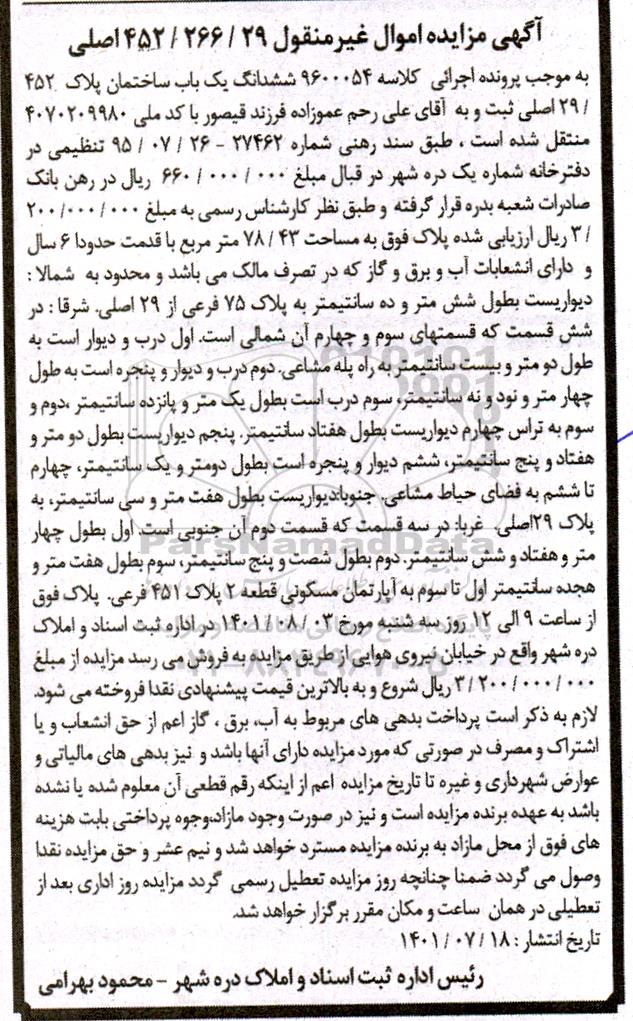 آگهی مزایده اموال غیرمنقول ۲۹ / ۲۶۶ / ۴۵۲ اصلی
به موجب پرونده اجرائی کلاسه ۹۶۰۰۰۵۴ ششدانگ یک باب ساختمان پلاک ۴۵۲
/ ۲۹ اصلی ثبت و به آقای علی رحم عموزاده فرزند قیصور با کد ملی ۴۰۷۰۲۰۹۹۸۰
منتقل شده است ، طبق سند رهنی شماره ۲۷۴۶۲ - ۲۶ / ۰۷ / ۹۵ تنظیمی در
دفترخانه شماره یک دره شهر در قبال مبلغ ۰۰۰ / ۰۰۰ / ۶۶۰ ریال در رهن بانک
صادرات شعبه بدره قرار گرفته و طبق نظر کارشناس رسمی به مبلغ ۰۰۰ /۰۰۰/ ۲۰۰
/ ۳ ریال ارزیابی شده پلاک فوق به مساحت ۴۳ / ۷۸ متر مربع با قدمت حدودا ۶ سال
و دارای انشعابات آب و برق و گاز که در تصرف مالک می باشد و محدود به شمالا :
دیواریست بطول شش متر و ده سانتیمتر به پلاک ۷۵ فرعی از ۲۹ اصلی. شرقا : در
شش قسمت که قسمتهای سوم و چهارم آن شمالی است. اول درب و دیوار است به
طول دو متر و بیست سانتیمتر به راه پله مشاعی. دوم درب و دیوار و پنجره است به طول
چهار متر و نود و نه سانتیمتر، سوم درب است بطول یک متر و پانزده سانتیمتر ،دوم و
سوم به تراس چهارم دیواریست بطول هفتاد سانتیمتر. پنجم دیواریست بطول دو متر و
هفتاد و پنج سانتیمتر، ششم دیوار و پنجره است بطول دومتر و یک سانتیمتر، چهارم
تا ششم به فضای حیاط مشاعی. جنوبا:دیواریست بطول هفت متر و سی سانتیمتر، به
پلاک ۲۹اصلی. غربا: در سه قسمت که قسمت دوم آن جنوبی است. اول بطول چهار
متر و هفتاد و شش سانتیمتر. دوم بطول شصت و پنج سانتیمتر، سوم بطول هفت متر و
هجده سانتیمتر اول تا سوم به آپارتمان مسکونی قطعه ۲ پلاک ۴۵۱ فرعی. پلاک فوق
از ساعت ۹ الی ۱۲ روز سه شنبه مورخ ۰۳ / ۰۸ / ۱۴۰۱ در اداره ثبت اسناد و املاک
دره شهر واقع در خیابان نیروی هوایی از طریق مزایده به فروش می رسد مزایده از مبلغ
۰۰۰ / ۰۰۰ / ۲۰۰ / ۳ ریال شروع و به بالاترین قیمت پیشنهادی نقدا فروخته می شود.
لازم به ذکر است پرداخت بدهی های مربوط به آب، برق ، گاز اعم از حق انشعاب و یا
اشتراک و مصرف در صورتی که مورد مزایده دارای آنها باشد و نیز بدهی های مالیاتی و
عوارض شهرداری و غیره تا تاریخ مزایده اعم از اینکه رقم قطعی آن معلوم شده یا نشده
باشد به عهده برنده مزایده است و نیز در صورت وجود مازاد،وجوه پرداختی بابت هزینه
های فوق از محل مازاد به برنده مزایده مسترد خواهد شد و نیم عشر و حق مزایده نقدا
وصول می گردد ضمنا چنانچه روز مزایده تعطیل رسمی گردد مزایده روز اداری بعد از
تعطیلی در همان ساعت و مکان مقرر برگزار خواهد شد.
تاریخ انتشار : ۱۸ / ۰۷ / ۱۴۰۱
رئیس اداره ثبت اسناد و املاک دره شهر - محمود بهرامی
ParsNamadData